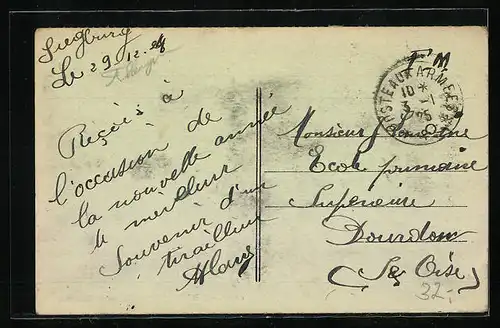 Siegburg
Le 29.12.24
Reçois à
l'occasion de
la nouvelle année
le meilleur
Souvenir d'un
tirailleur
F M
POSTE AUX ARMEES
10 *
3 - 1
25
Monsieur
Ecole primaire
Supérieure
Dourdan
(S et Oise)
32,-